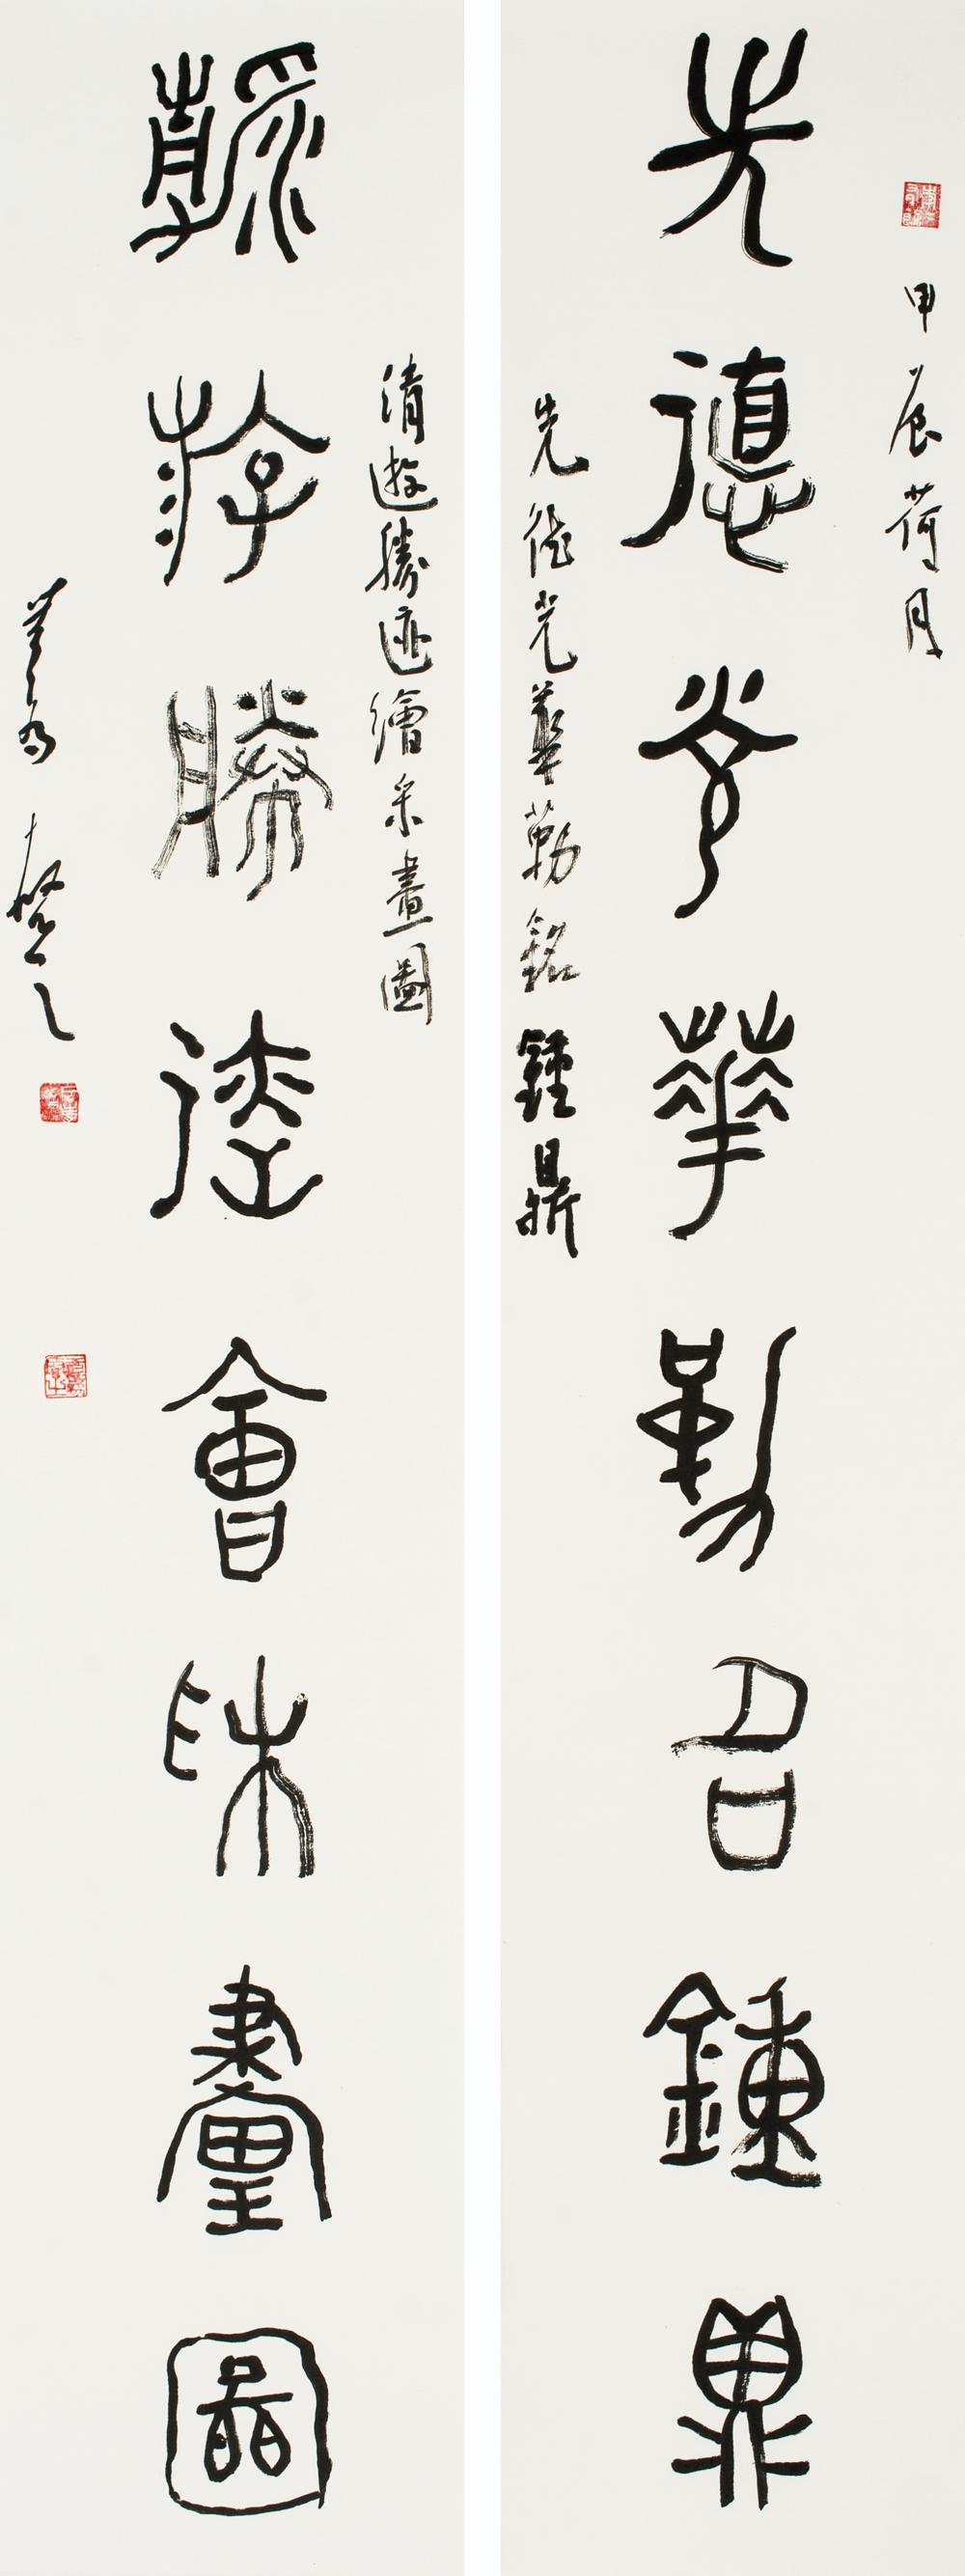 甲辰荷月
先德光華勒召鍾鼎
先德光華勒銘鍾鼎
清遊勝迹繪采畫圖
斿勝迹會畫圖